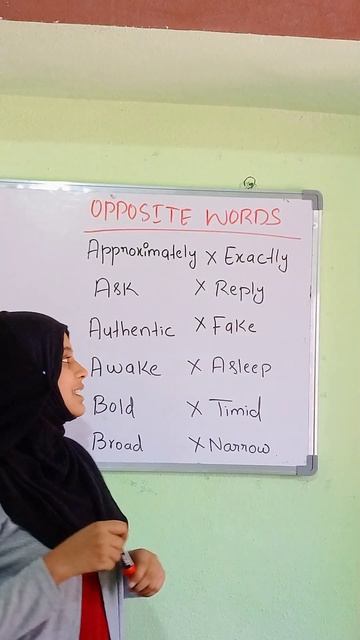 OPPOSITE WORDS
Approximately x Exactly
Ask x Reply
Authentic x Fake
Awake x Asleep
Bold x Timid
Broad x Narrow